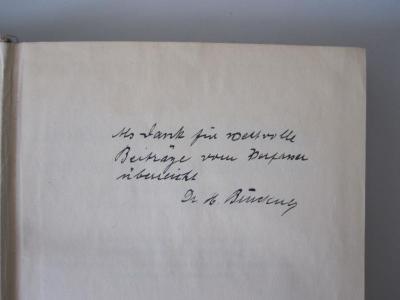 Als Dank für wertvolle
Beiträge vom Verfasser
überreicht
Dr. H